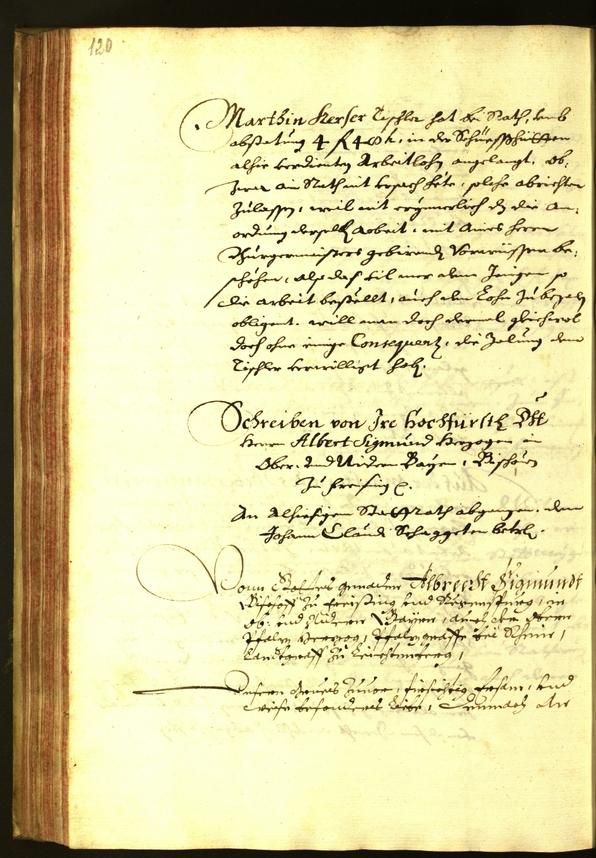 120
Marthin Kerser Tischler hat bei Rath, umb
abstatung 4 f 48 k, in der
alhie verdienten Arbeitlohn angelangt, ob:
zwar ain Rath nit ursach hete, solche abrichten
zulassen, weil nit erinnerlich dz die an:
ordnung derselben arbeit, mit Aines herrn
Burgermaisters gebirenden Vorwissen be:
schehen, also das vil mer dem Jenigen so
die arbeit bestellt, auch den Lohn zu bezaln
obligent. will man doch dermal gleichwol
doch ohne einige Consequenz, die Zalung dem
Tischler verwilligt hab.
Schreiben von Ire Hochfürstl Dht
Herrn Albert Sigmund Herzogen in
Ober: und Nidern Bayrn, Bischoven
zu Freising
An Alhiesigen Stattrath abgangen, den
Johann Claudi betr.
Vonn Gottes genaden Albrecht Sigmundt
Bischoff zu Freising und Regenspurg, in
Ob: und Nidern Bayrn, auch der Obern
Pfalz Herzog, Pfalzgraffe bei Rhein,
Landtgraff zu Leichtenberg,
Unsern grues zuvor, fürsichtig Ersam, und
weise besonders liebe,